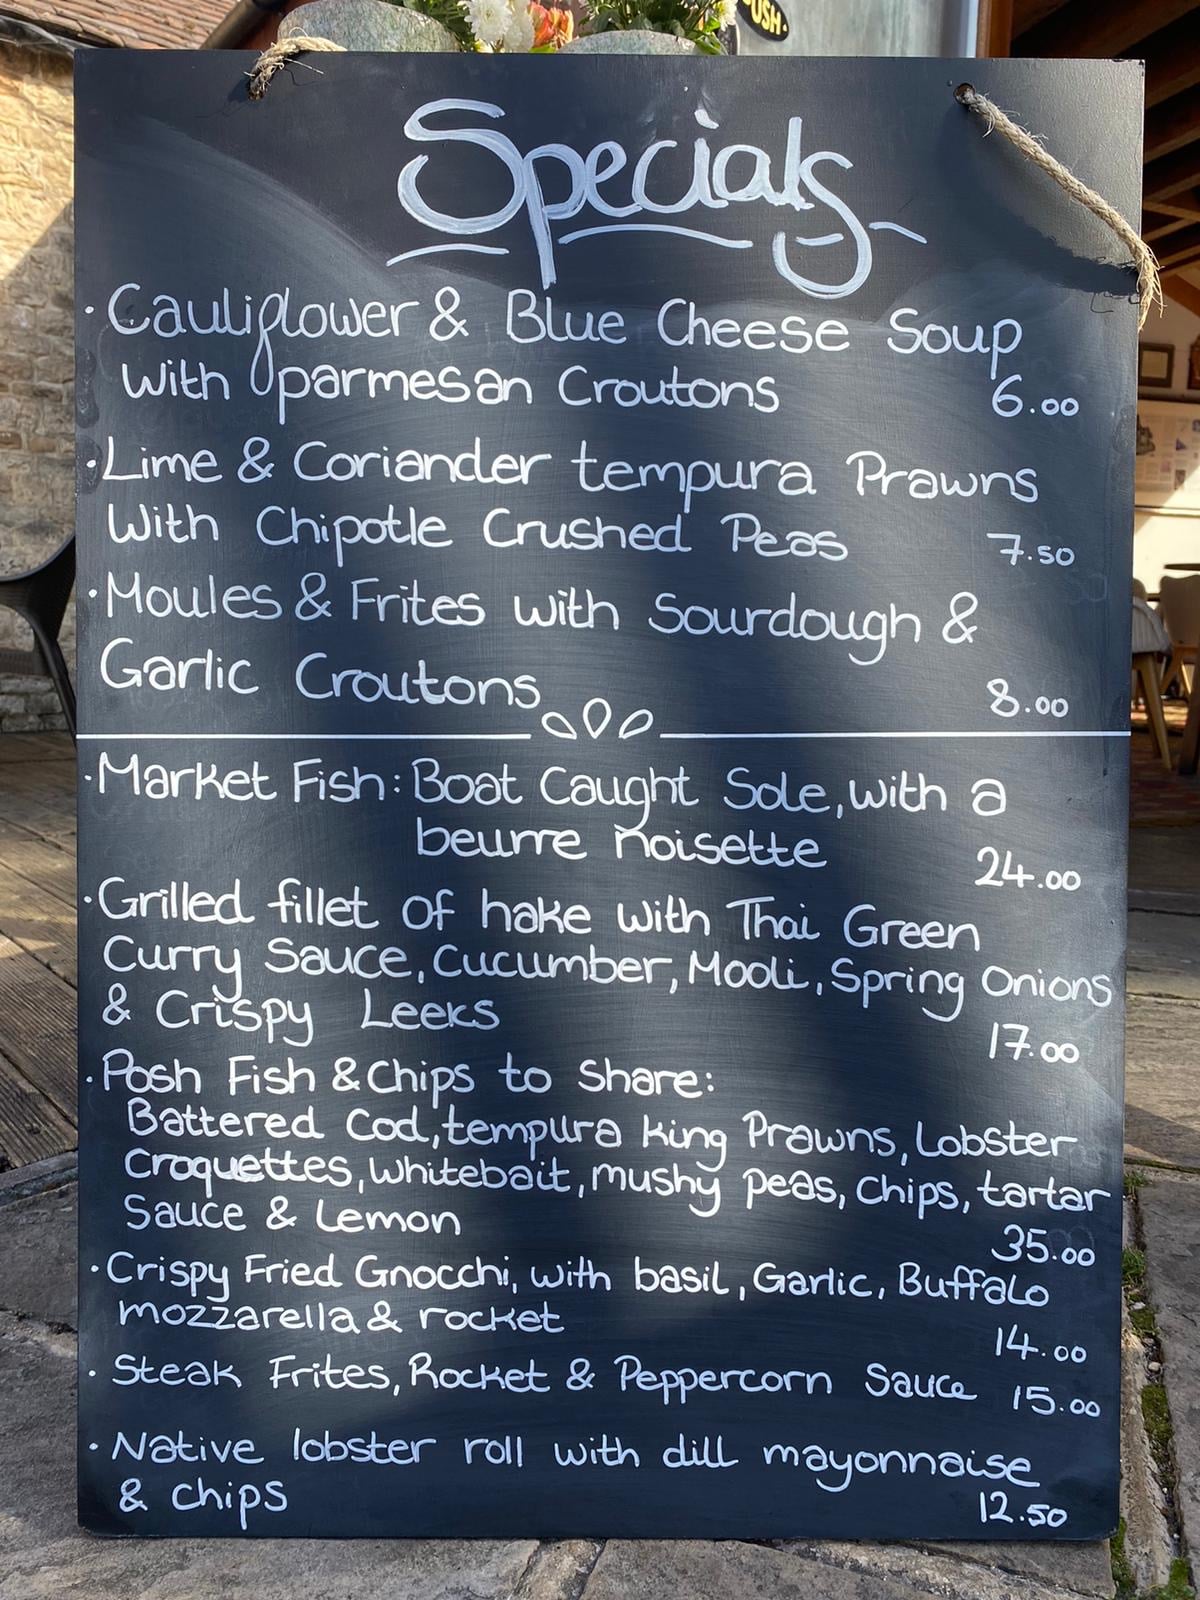 USH.
Specials
· Cauliflower & Blue Cheese Soup
with parmesan Croutons 6.00
· Lime & Coriander tempura Prawns
With Chipotle Crushed Peas 7.50
· Moules & Frites with Sourdough &
Garlic Croutons 8.00
· Market Fish: Boat Caught Sole, with a
beurre noisette 24.00
· Grilled fillet of hake with Thai Green
Curry Sauce, Cucumber, Mooli, Spring Onions
& Crispy Leeks 17.00
· Posh Fish & Chips to Share:
Battered Cod, tempura King Prawns, Lobster
Croquettes, whitebait, mushy peas, Chips, tartar
Sauce & Lemon 35.00
· Crispy Fried Gnocchi, with basil, Garlic, Buffalo
mozzarella & rocket 14.00
· Steak Frites, Rocket & Peppercorn Sauce 15.00
· Native lobster roll with dill mayonnaise
& chips 12.50